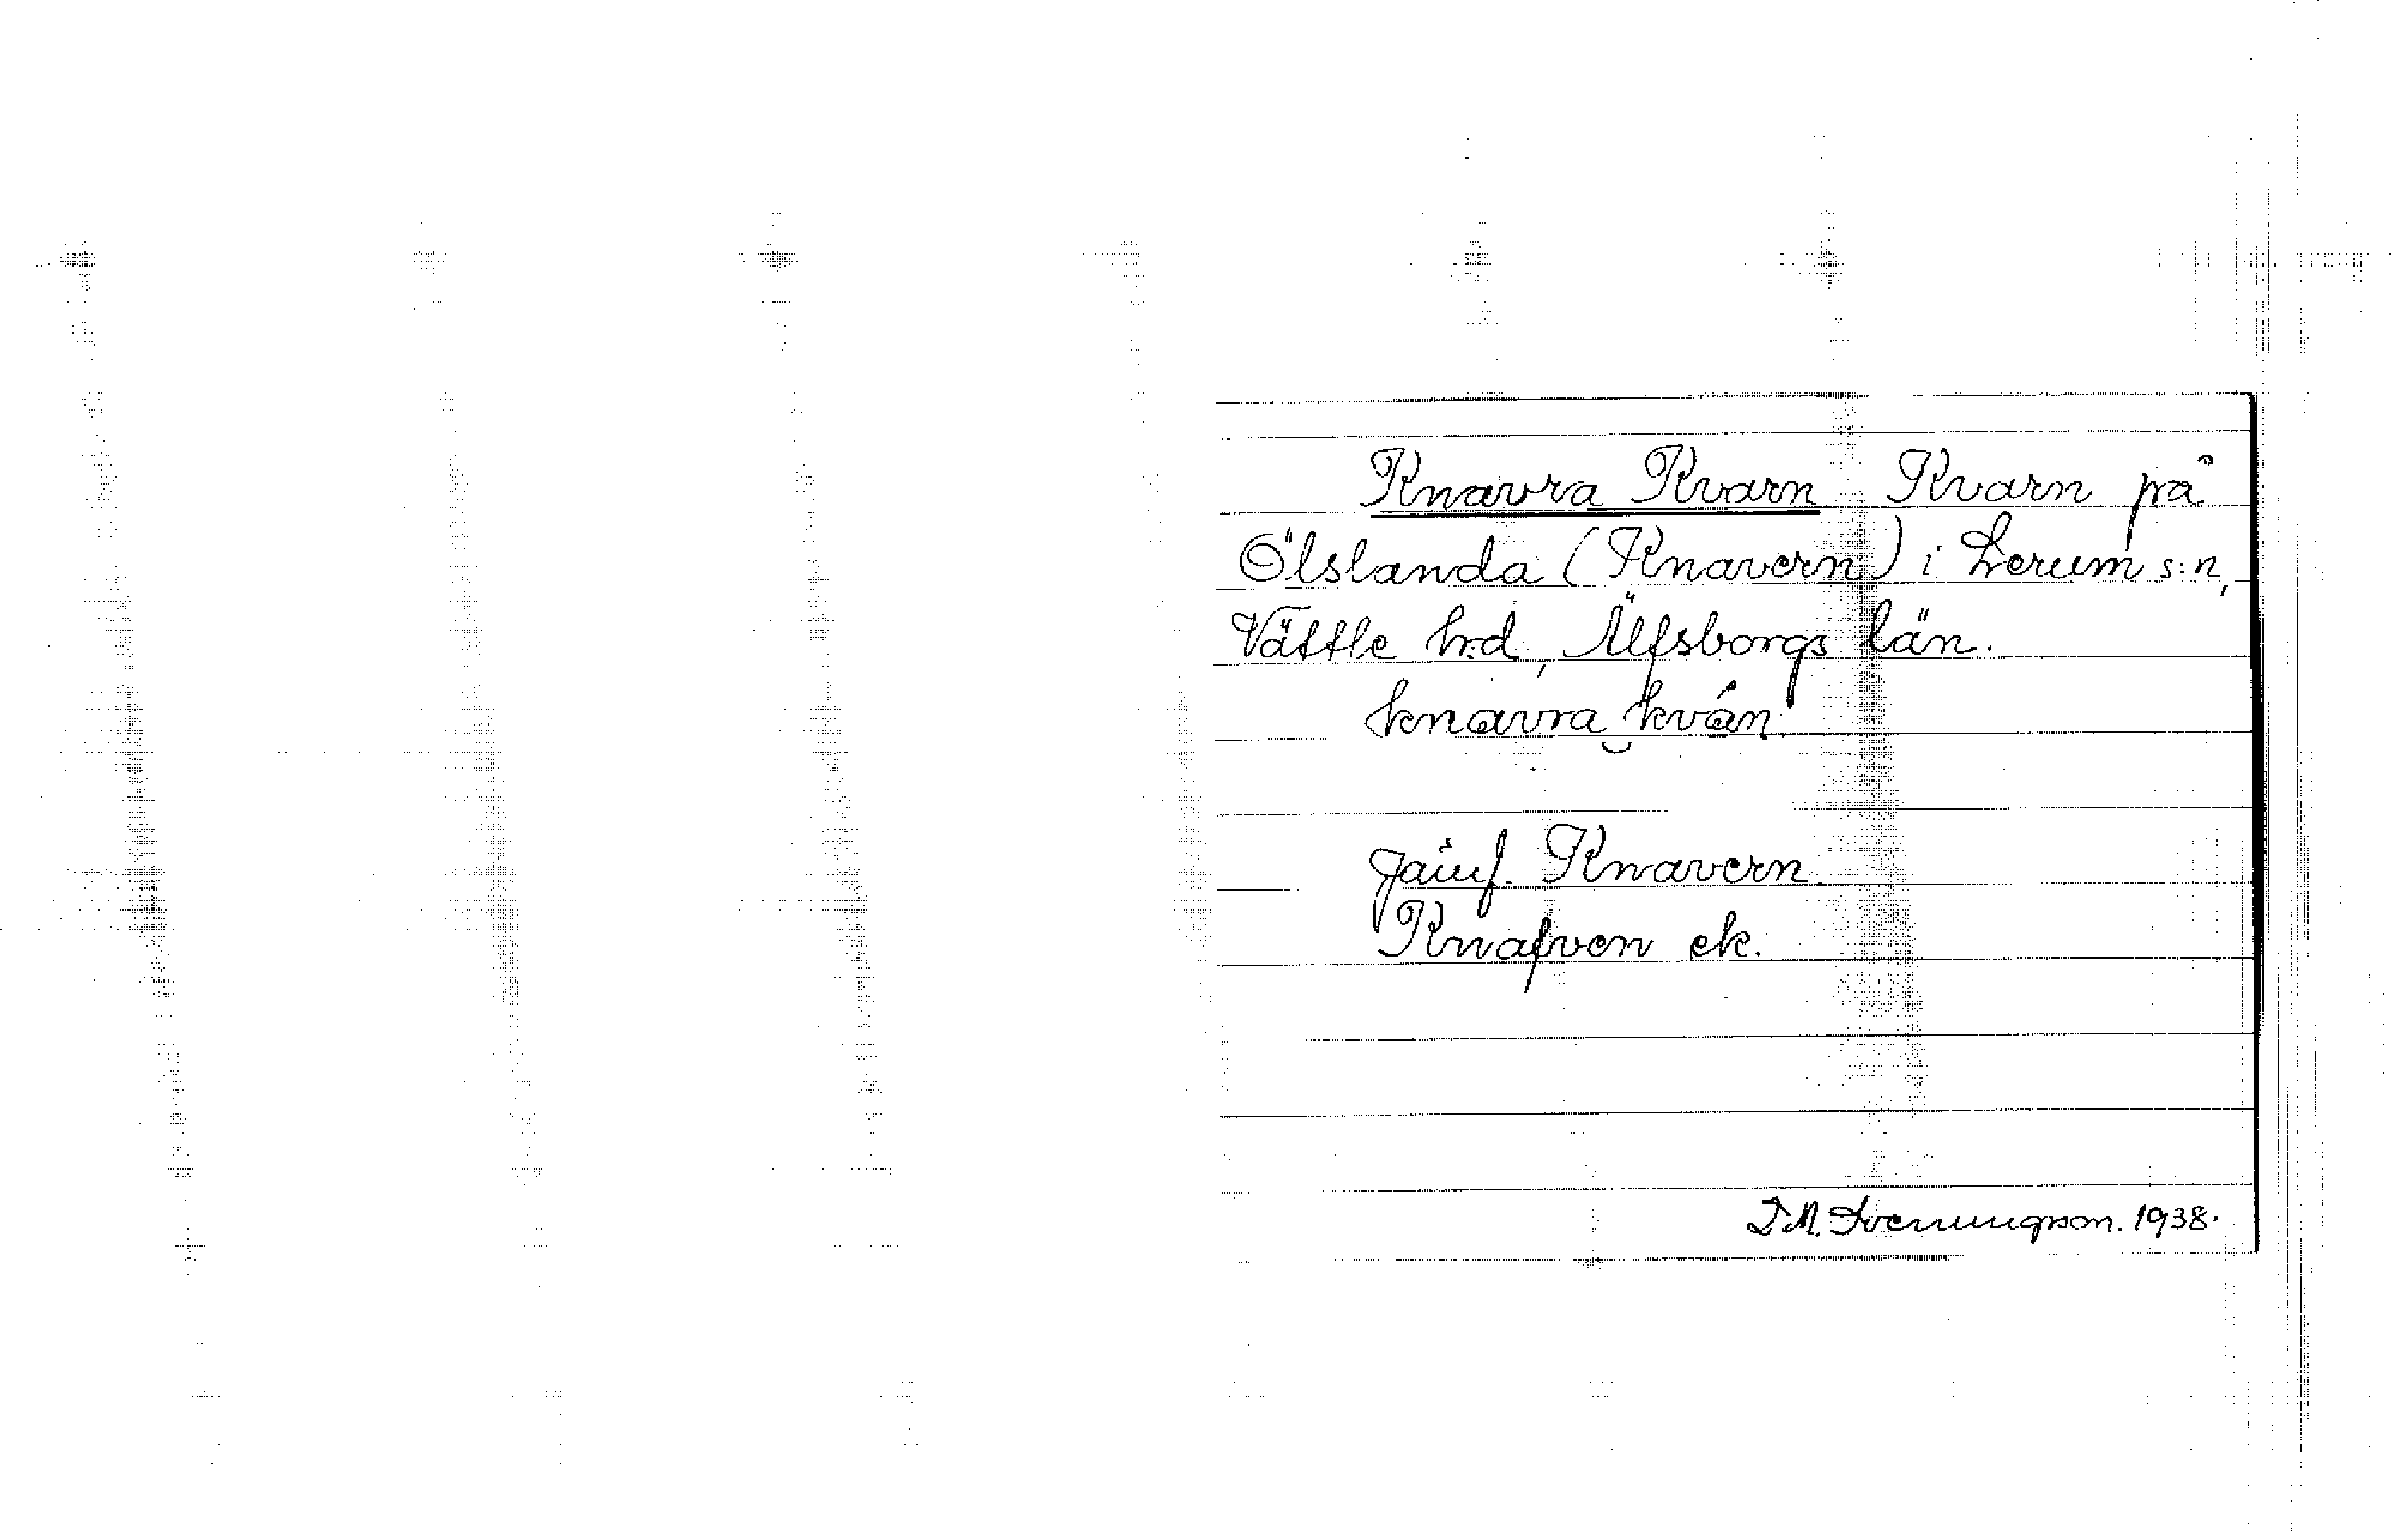 Knavra Kvarn Kvarn på
Ölslanda (Knavern) i Lerum s:n,
Vättle h:d, Älfsborgs län.
knavra kván.
Jämf. Knavern.
Knafven ek.
D.M. Svenungson. 1938.